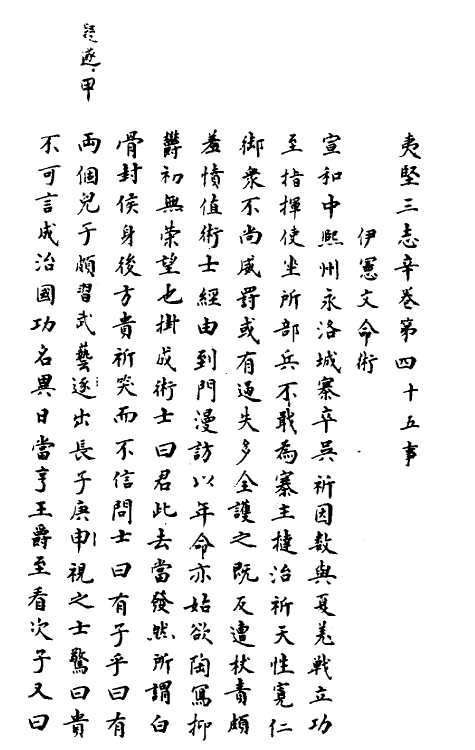 夷堅三志辛卷第四十五事
伊憲文命術
宣和中熙州永洛城寨卒吳祈因數與夏羌戰立功
至指揮使坐所部兵不戢為寨主撻治祈天性寬仁
御衆不尚威罰或有過失多全護之既反遭杖責頗
羞憤值術士經由到門漫訪以年命亦姑欲陶寫抑
鬱初無榮望也掛成術士曰君此去當發然所謂白
骨封侯身後方貴祈笑而不信問士曰有子乎曰有
兩個兒子頗習武藝逐出長子庚申視之士驚曰貴
不可言成治國功名異日當享王爵至看次子又曰
疑遂甲